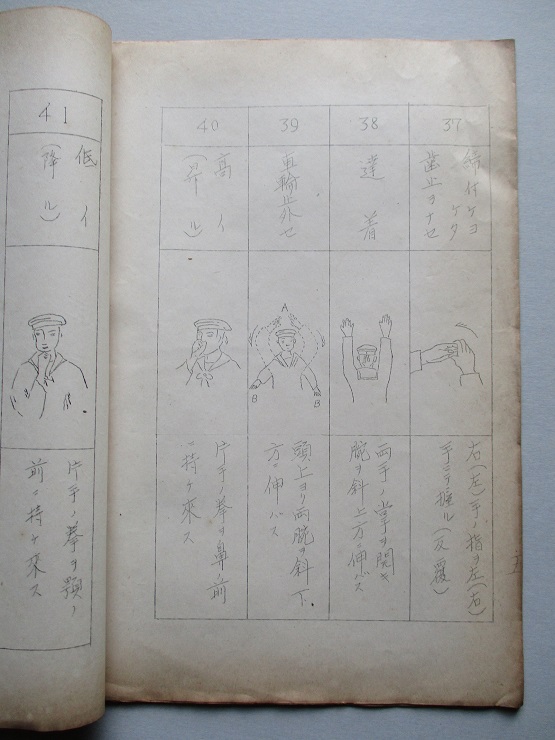 37
締付ケヨ
ケタ
歯止ヲナセ
右(左)手ノ指ヲ左(右)
手ニテ握ル(反覆)
38
達着
両手ノ掌ヲ開キ
腕ヲ斜上方ニ伸バス
39
車輪止外セ
A
B
B
頭上ヨリ両腕ヲ斜下
方ニ伸バス
40
高イ
(昇ル)
片手ノ拳ヲ鼻ノ前
ニ持チ來ス
41
低イ
(降ル)
片手ノ拳ヲ顎ノ
前ニ持チ來ス